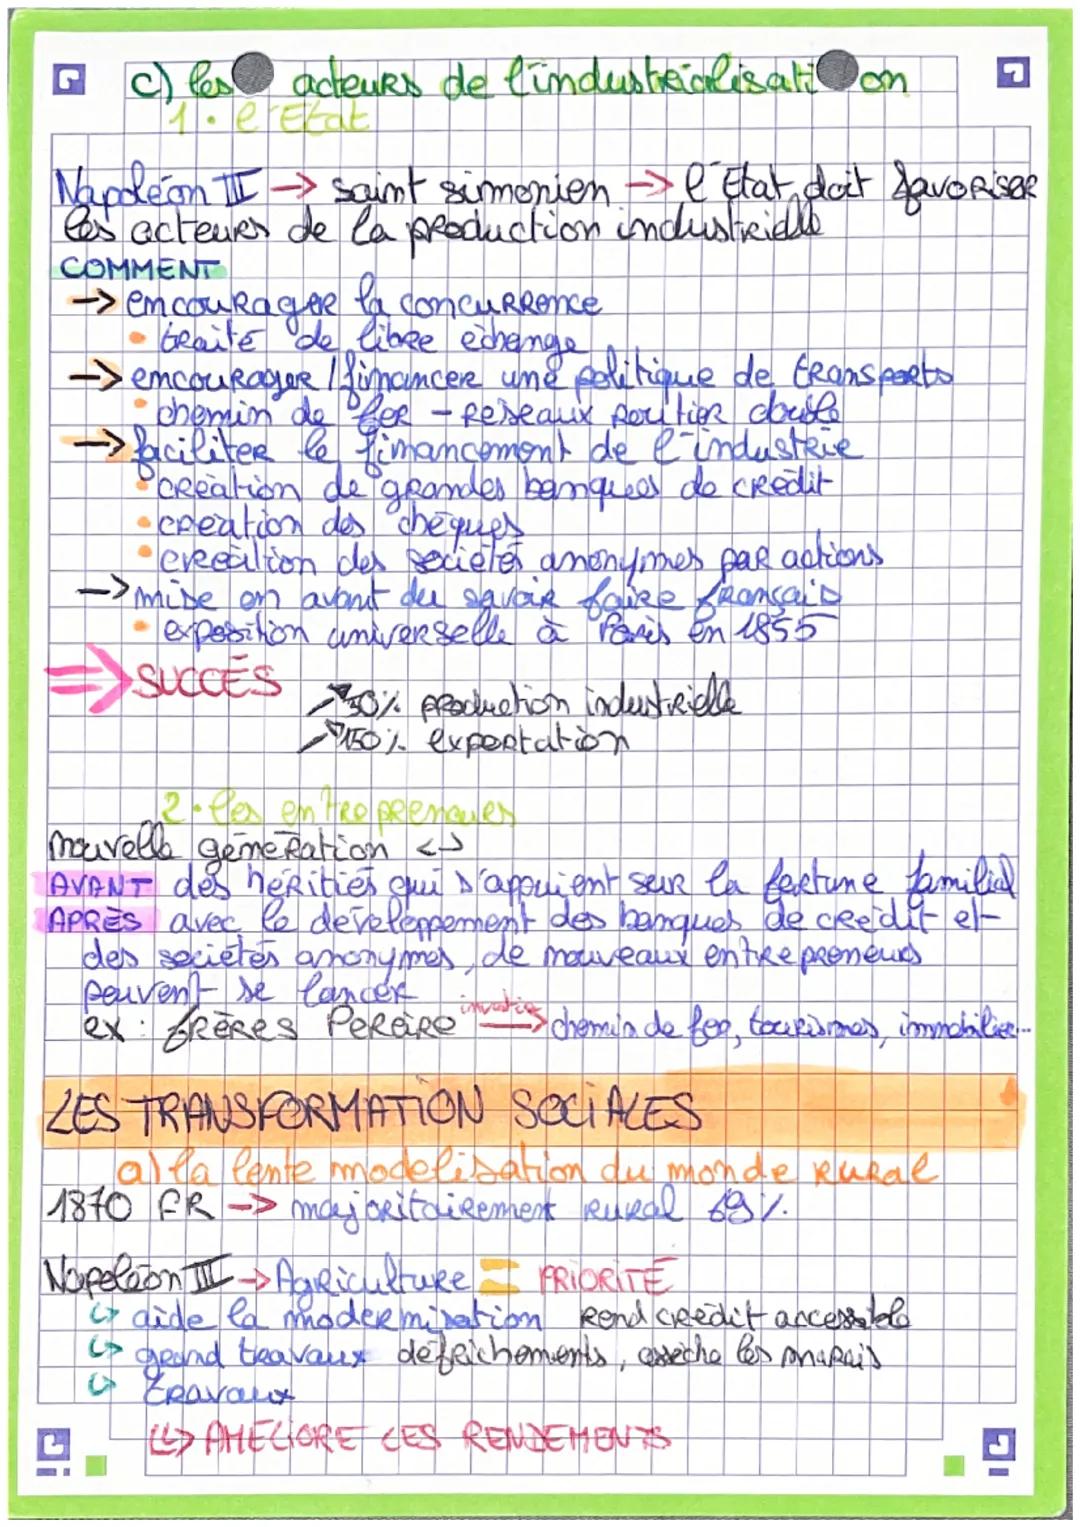 c) les acteurs de l'industrialisation
1. l'Etat
Napoléon III → saint simonien → l'Etat doit favoriser
les acteurs de la production industrielle
COMMENT
→ encourager la concurrence
• traité de libre échange
→ encourager / financer une politique de transports
• chemin de fer - réseaux routier double
→ faciliter le financement de l'industrie
• création de grandes banques de crédit
• création des chèques
• création des sociétés anonymes par actions
→ mise en avant du savoir faire français
• exposition universelle à Paris en 1855
⇒ SUCCÉS
↗ 50% production industrielle
↗ 150% exportation
2. les entrepreneurs
nouvelle génération <->
AVANT des hérités qui s'appuient sur la fortune familial
APRÈS avec le développement des banques de crédit et
des sociétés anonymes, de nouveaux entrepreneurs
peuvent se lancer
ex : FRÈRES PEREIRE → chemin de fer, tourismes, immobilier...
LES TRANSFORMATION SOCIALES
a) la lente modelisation du monde rural
1870 FR → majoritairement rural 69%
Napoléon III → Agriculture = PRIORITÉ
↳ aide la modernisation rend crédit accessible
↳ grand travaux défrichements, assèche les marais
↳ travaux
↳ AMÉLIORE LES RENDEMENTS